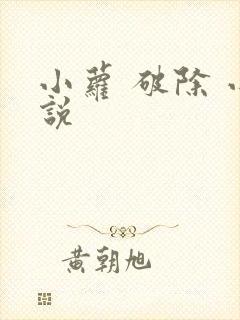 小蘿 破除 小
說
黃朝旭